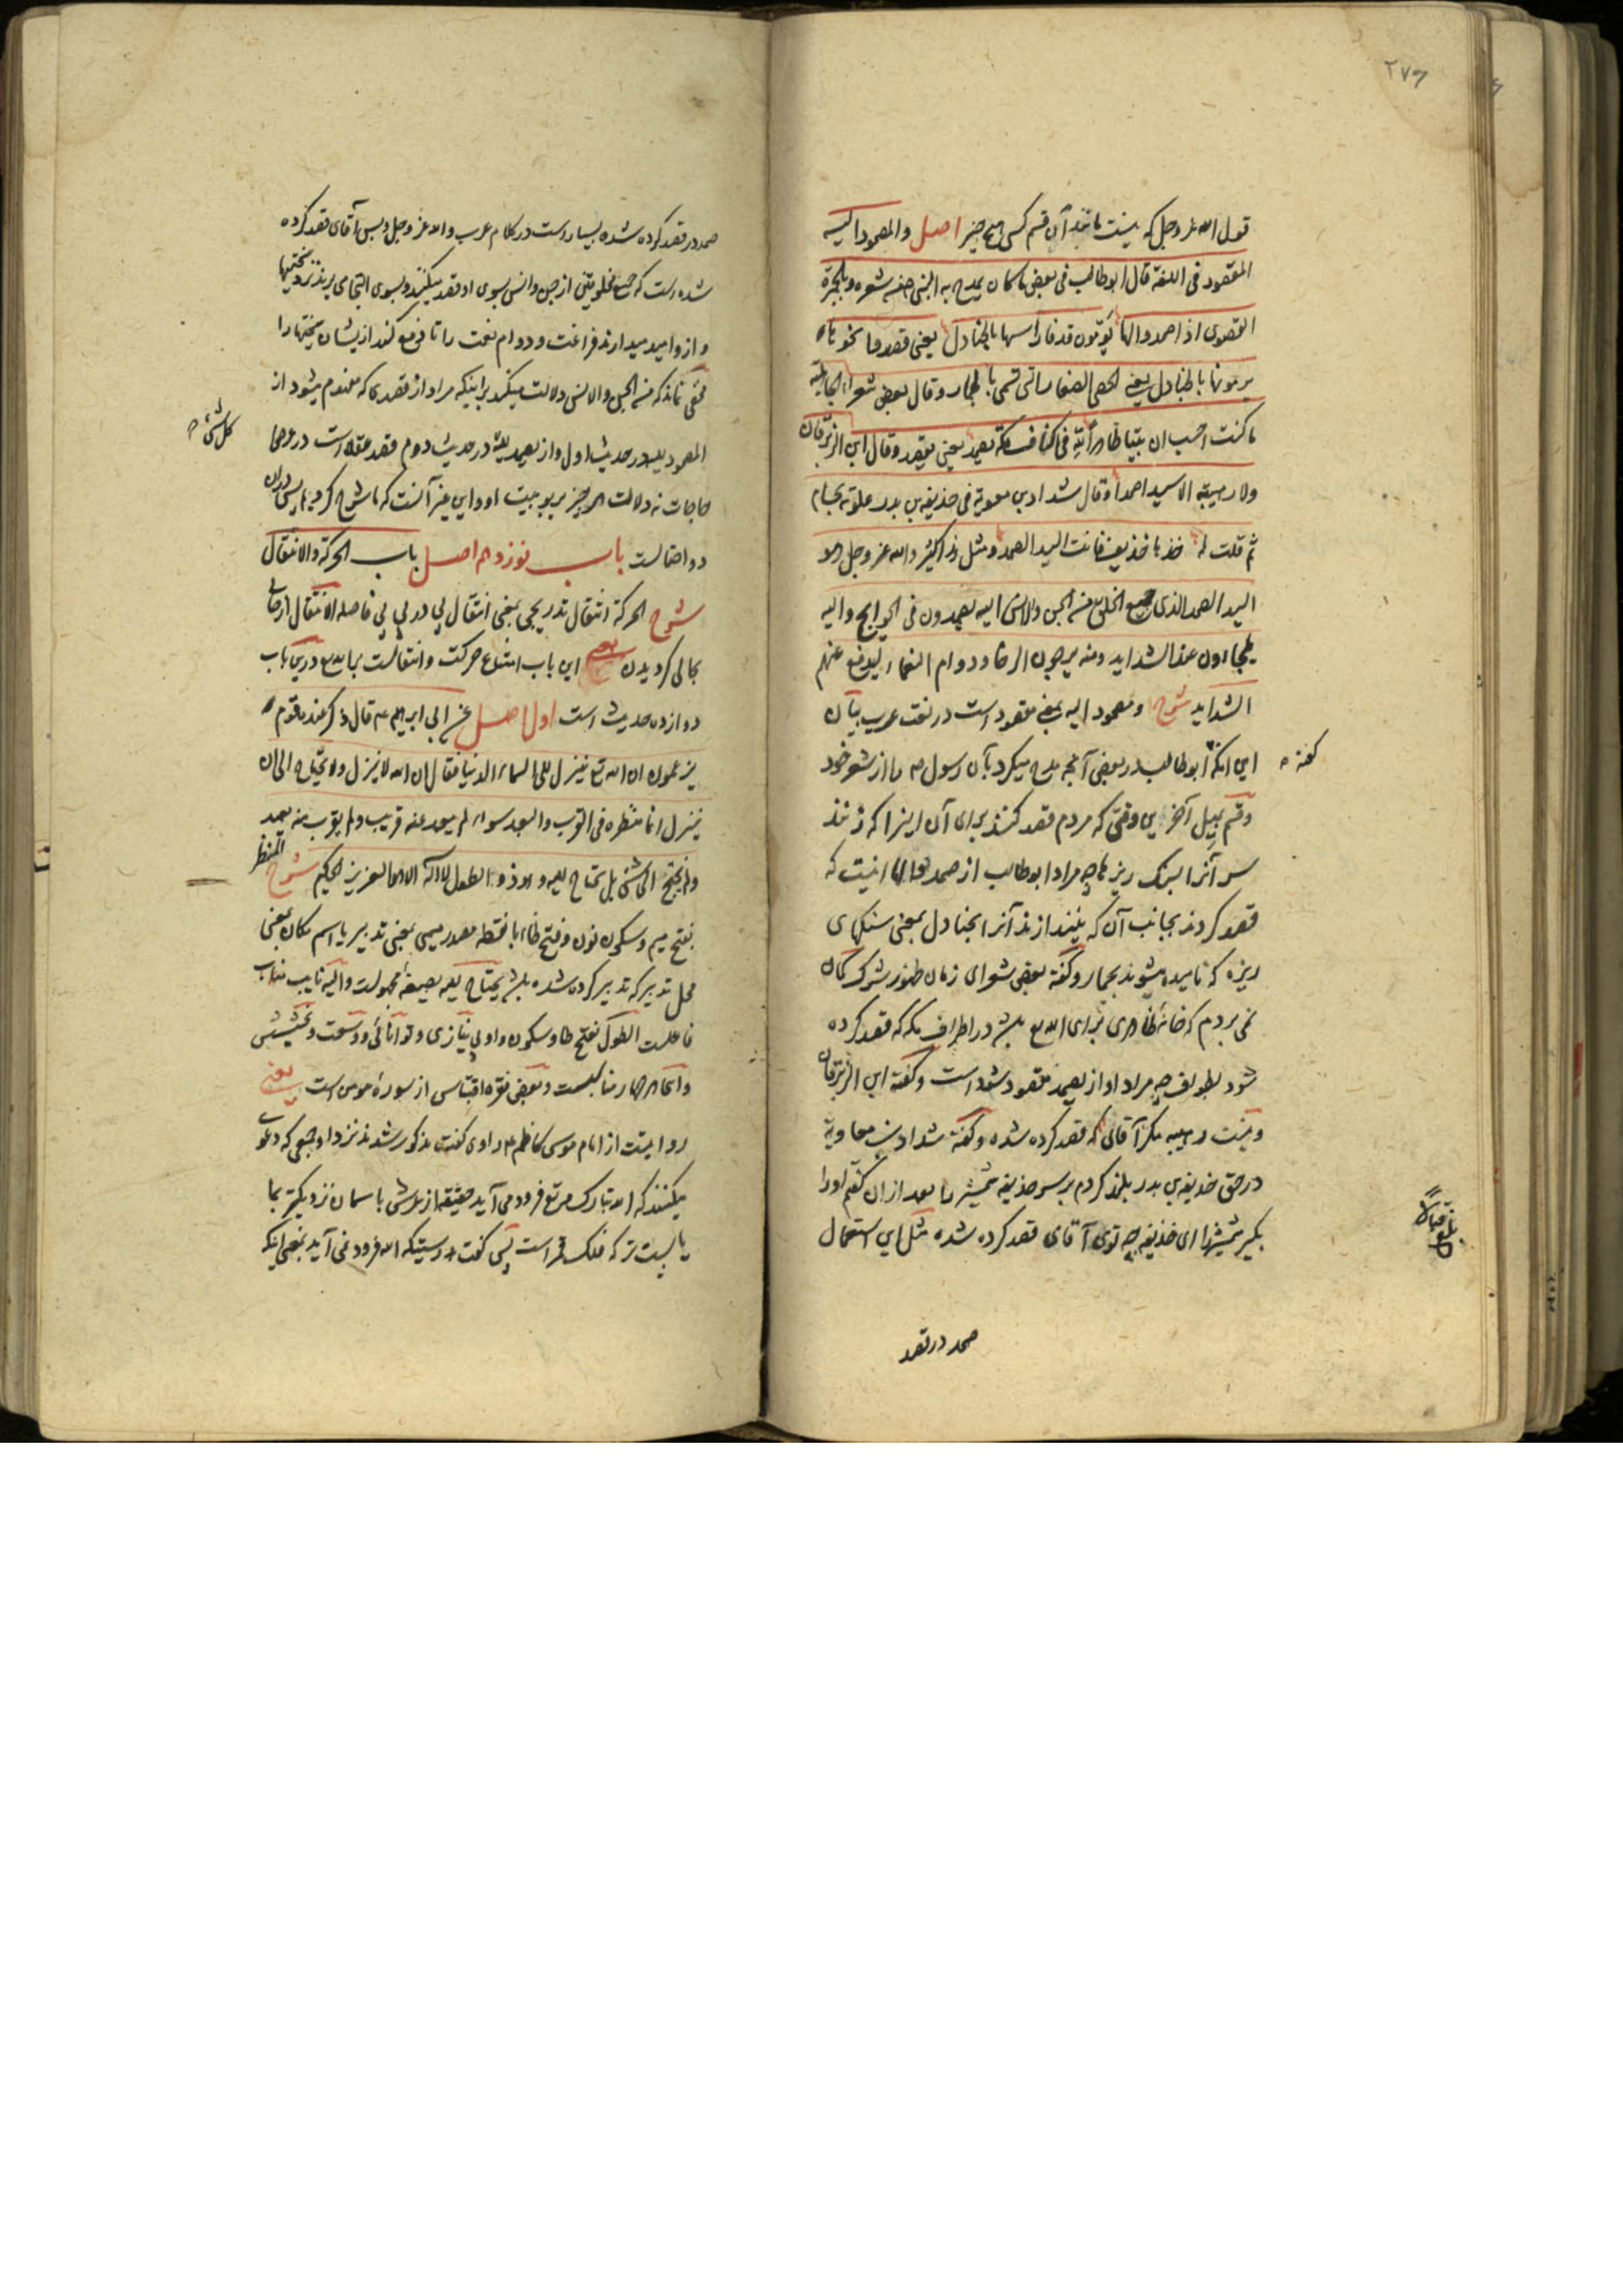 ۲۷۶
قول الله عز وجل که نیست مانند آن قسم کسی هیچ چیز اصل والمصمود الیه
المقصود فی اللغة قال ابو طالب فی بعض ما کان یمدح به النبی صم من شعره وبالجمرة
القصوی اذا صمدوا لها یؤمون قذفا رأسها بالجنادل یعنی قصدوا نحوها
یرمونها بالجنادل یعنی الحصی الصغار التی تسمی بالجمار وقال بعض شعراء الجاهلیة
ما کنت احسب ان بیتا ظاهرا لله فی اکناف مکة یصمد یعنی یقصد وقال ابن الزبرقان
ولا رهیبة الا سید صمد وقال شداد بن معویة فی حذیفة بن بدر علوته بحسام
ثم قلت له خذها حذیف فانت السید الصمد ومثل هذا کثیر والله عز وجل هو
السید الصمد الذی جمیع الخلق من الجن والانس الیه یصمدون فی الحوایج والیه
یلجاءون عند الشداید ومنه یرجون الرخاء ودوام النعماء لیدفع عنهم
الشداید شرح ومصمود الیه بمعنی مقصود است در لغت عرب بیان
این انکه ابو طالب در بعض آنچه مدح میکرد بآن رسول ص را از شعر خود
گفته
وقتی که مردم قصد کنند برای آن اینرا که زنند
سر آنرا بسنک ریزها چه مراد ابو طالب از صمدوا لها اینست که
قصد کردند بجانب آن که بیندازند آنرا بجنادل بمعنی سنکهای
ریزه که نامیده میشوند بجمار وگفته بعض شعرای زمان ظهور شرک گمان
نمی بردم که خانۀ ظاهری برای الله تع باشد در اطراف مکه که قصد کرده
شود بطواف چه مراد او از یصمد مقصود شدن است وگفته ابن الزبرقان
ونیست رهیبه مگر آقائی که قصد کرده شده وگفته شداد بن معاویة
در حق حذیفة بن بدر بلند کردم بر سر حذیفه شمشیر را بعد از ان گفتم اورا
بگیر شمشیر را ای حذیفه چه توی آقای قصد کرده شده مثل این استعمال
بلغ قبالا
صمد در قصد
صمد در قصد کرده شده بسیار است در کلام عرب والله عز وجل وبس آقای قصد کرده
شده است که جمیع مخلوقین از جن وانس بسوی او قصد میکنند وبسوی او التجا می برند نزد سختیها
و ازو امید میدارند فراغت ودوام نعمت را تا دفع کند ازیشان سختیها را
مخفی نماند که من الجن والانس دلالت میکند بر اینکه مراد از قصدی که مفهوم میشود از
کل شئ
المصمود الیه در حدیث اول واز یصمد الیه در حدیث دوم قصد عقلا است در عرض
حاجات نه دلالت هر چیز بر ربوبیت او واین غیر آنست که ما شرح کردیم پس در ان
دو احتمالست باب نوزدهم اصل باب الحرکة والانتقال
شرح الحرکة انتقال تدریجی یعنی انتقال پی در پی بی فاصله الانتقال از جائی
بجائی گردیدن یعنی این باب امتناع حرکت وانتقالست بر الله تع درین باب
دوازده حدیث است اول اصل عن ابی ابراهیم ع قال ذکر عنده قوم
یزعمون ان الله تع ینزل الی السماء الدنیا فقال ان الله لا ینزل ولا یحتاج الی ان
ینزل انما منظره فی القرب والبعد سواء لم یبعد عنه قریب ولم یقرب منه بعید
ولم یحتج الی شئ بل یحتاج الیه وهو ذو الطول لا اله الا هو العزیز الحکیم شرح المنظر
بفتح میم وسکون نون وفتح ظاء با نقطه مصدر میمی بمعنی تدبیر یا اسم مکان بمعنی
محل تدبیر که تدبیر کرده شده باشد یحتاج الیه بصیغۀ مجهولست والیه نایب مناب
فاعلست الطول بفتح طا وسکون واو بی نیازی وتوانائی ووسعت وبخشش
و انها هر چهار مناسبست وبعض فقره اقتباس از سورۀ مومن است یعنی
روایتست از امام موسی کاظم ع راوی گفت مذکور شدند نزد او جمعی که دعوی
میکنند که الله تبارک وتع فرود می آید حقیقة از عرش باسمان نزدیکتر بما
یا پست تر که فلک قمر است پس گفت بدرستیکه الله فرود نمی آید بمعنی اینکه